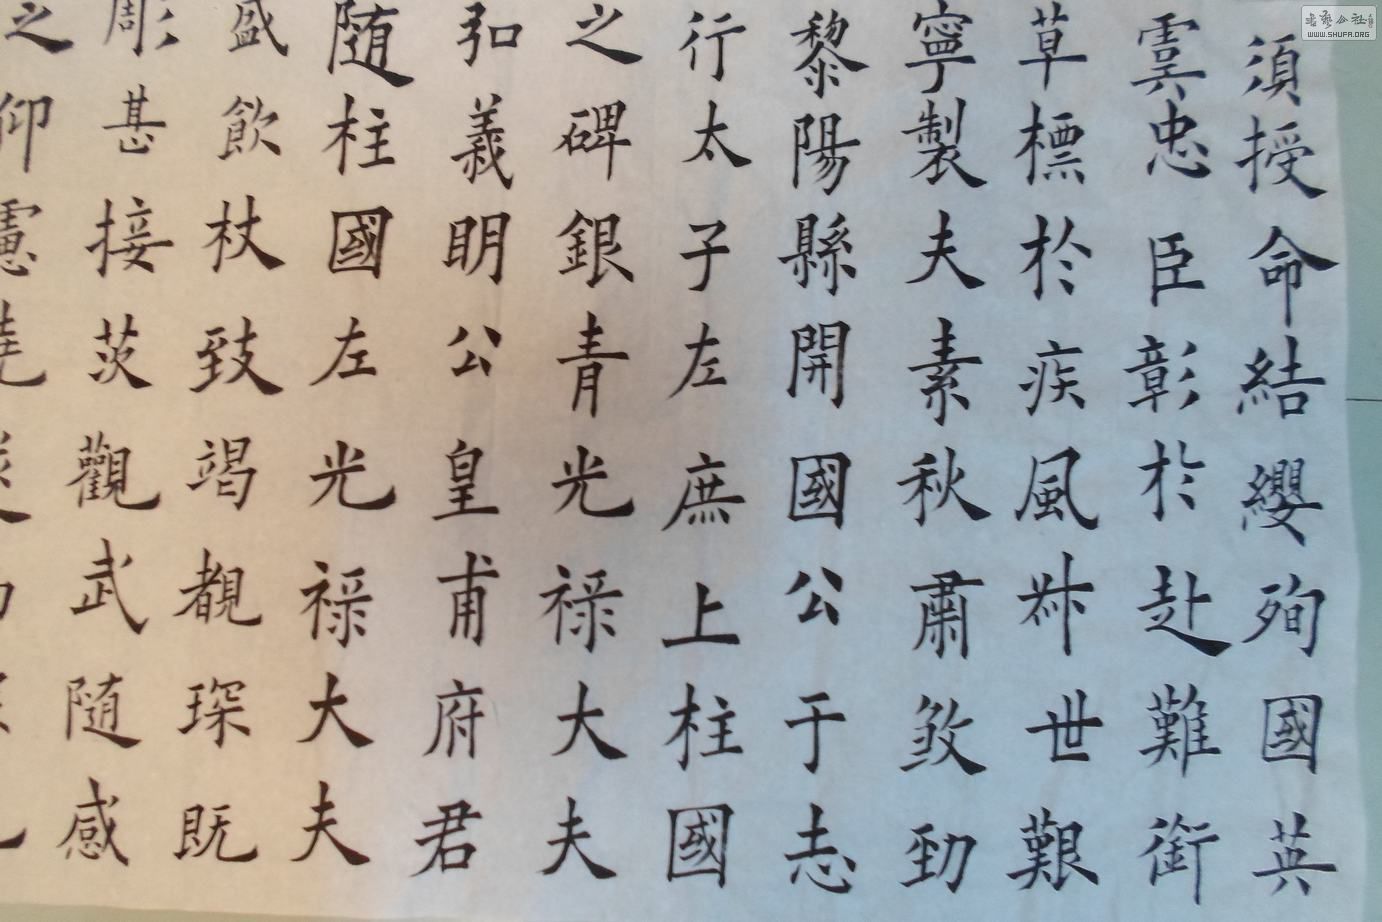 須授命結纓殉國英
虞忠臣彰於赴難銜
草標於疾風世艱
寧製夫素秋肅煞勁
黎陽縣開國公于志
行太子左庶上柱國
之碑銀青光祿大夫
義明公皇甫府君
随柱國左光祿大夫
盛飲杖致竭覩琛既
彫甚接茨觀武随感
之仰
WWW.SHUFA.ORG